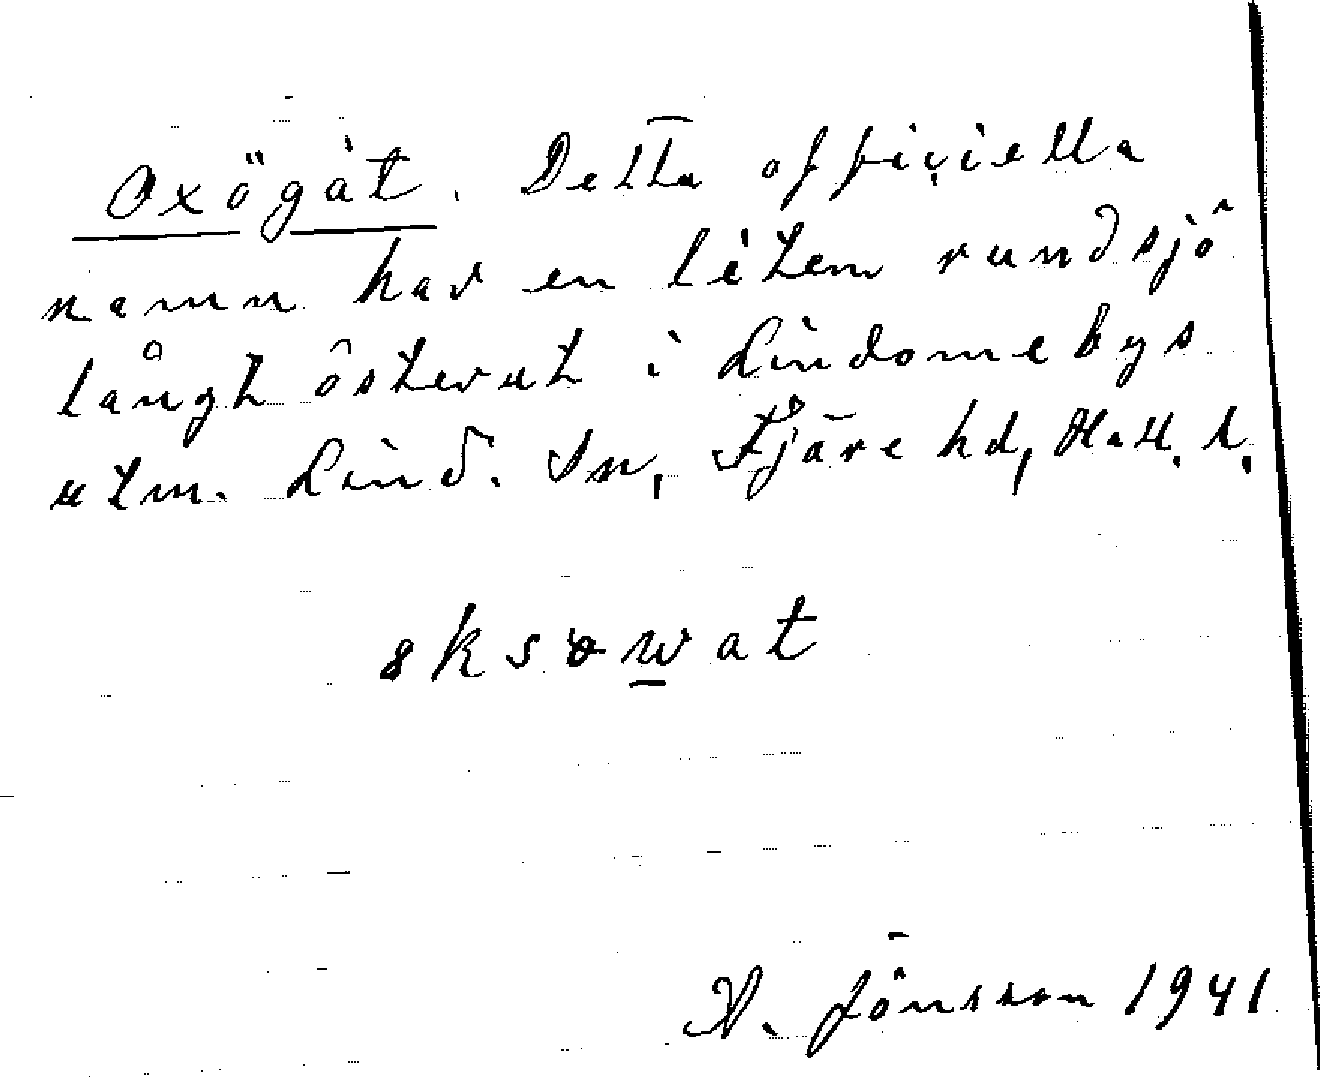 Oxögat. Detta officiella
namn har en liten rund sjö
långt österut i Lindome bys
utm. Lind. Sn, Fjäre hd, Hall. l.
oksowat
A. Jönsson 1941